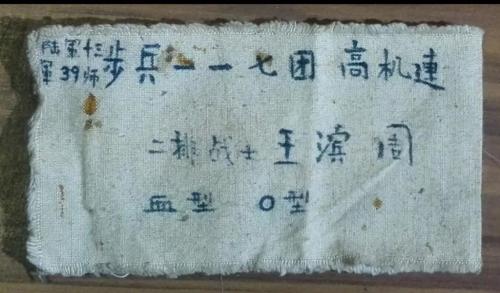 陆军十三
军39师
步兵一一七团 高机連
二排战士 王滨周
血型 O型